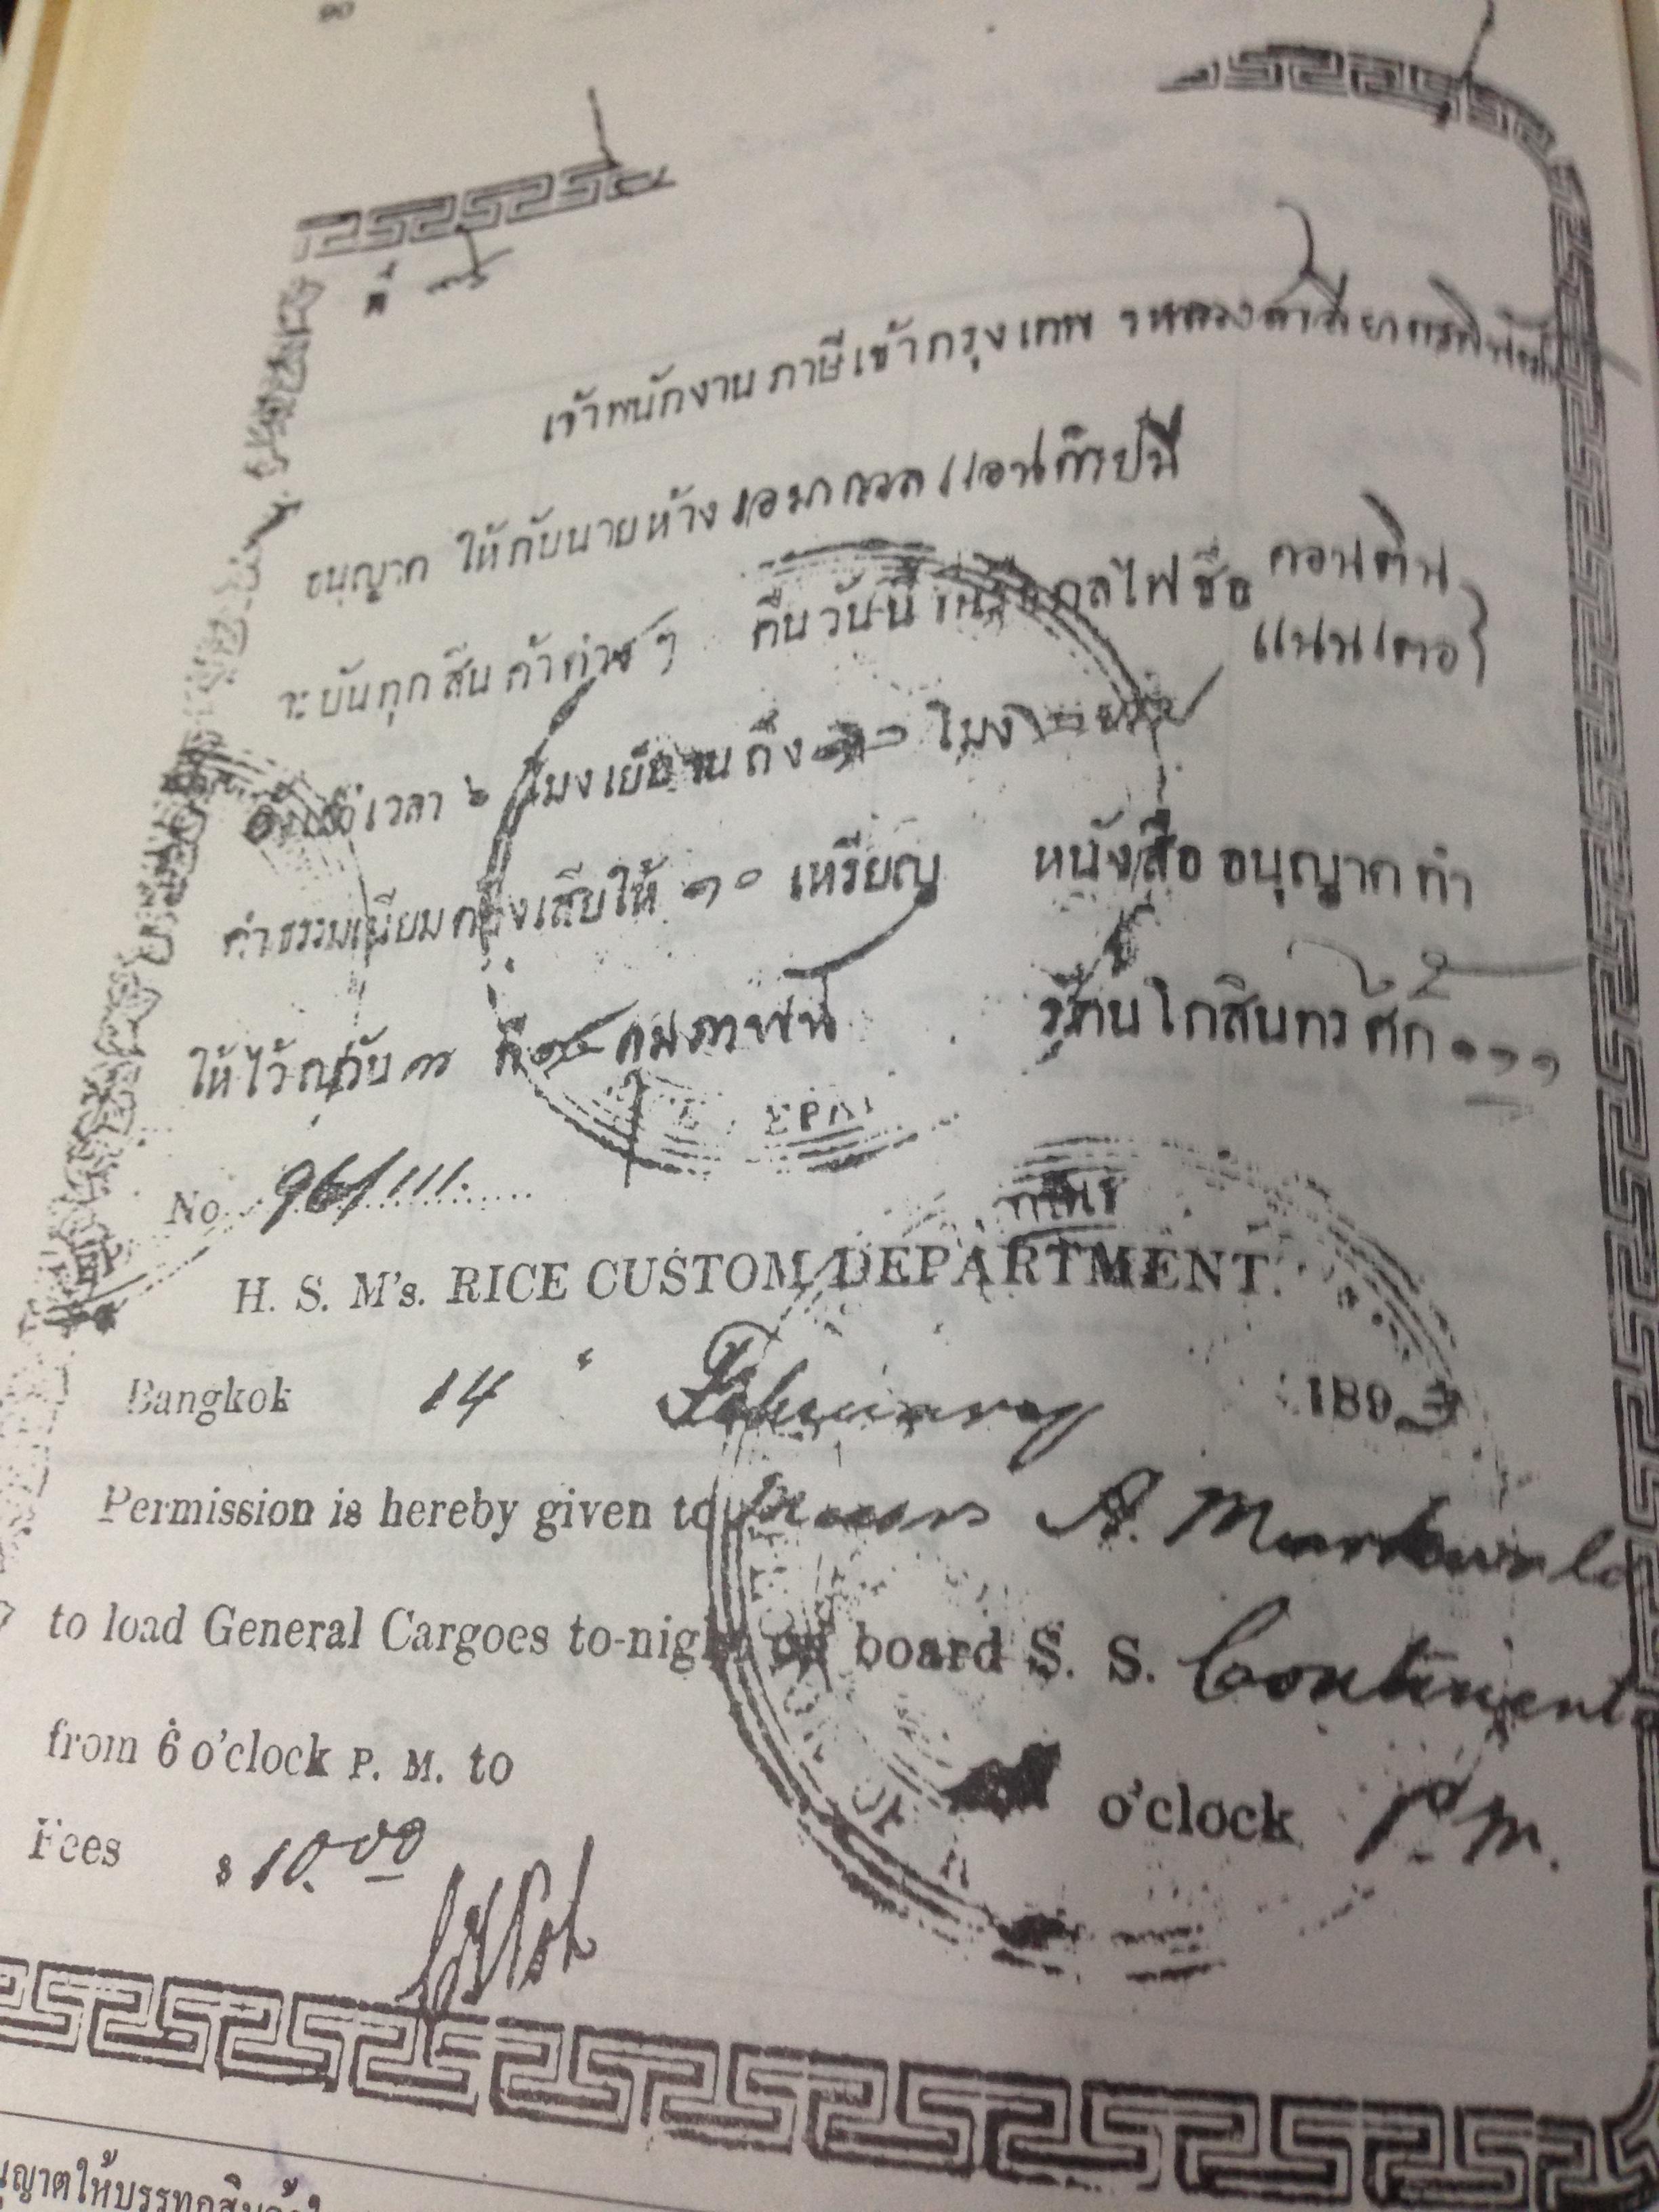 90
ที่
เจ้าพนักงานภาษีเข้ากรุงเทพ ฯ หลวง
อนุญาต ให้กับนายห้าง
จะบันทุกสินค้าต่างๆ คืนวันนี้ กลไฟชื่อ คอนติน
แนนเตอ}
ตั้งแต่เวลา ๖ โมงเย็น จนถึง ๑๐ โมง
ค่าธรรมเนียมต้องเสียให้ ๑๐ เหรียญ หนังสืออนุญาตทำ
ให้ไว้ณวัน ๓ ที่ ๑๔ กุมภาพันธ์ รัตนโกสินทรศก ๑๑๑
No. 96/111.
H. S. M's. RICE CUSTOM DEPARTMENT.
Bangkok 14 February 1893
Permission is hereby given to Messrs A. Markwald
to load General Cargoes to-night on board S. S. Continent
from 6 o'clock P. M. to o'clock P. M.
Fees $ 10.00
นุญาตให้บรรทุกสินค้า